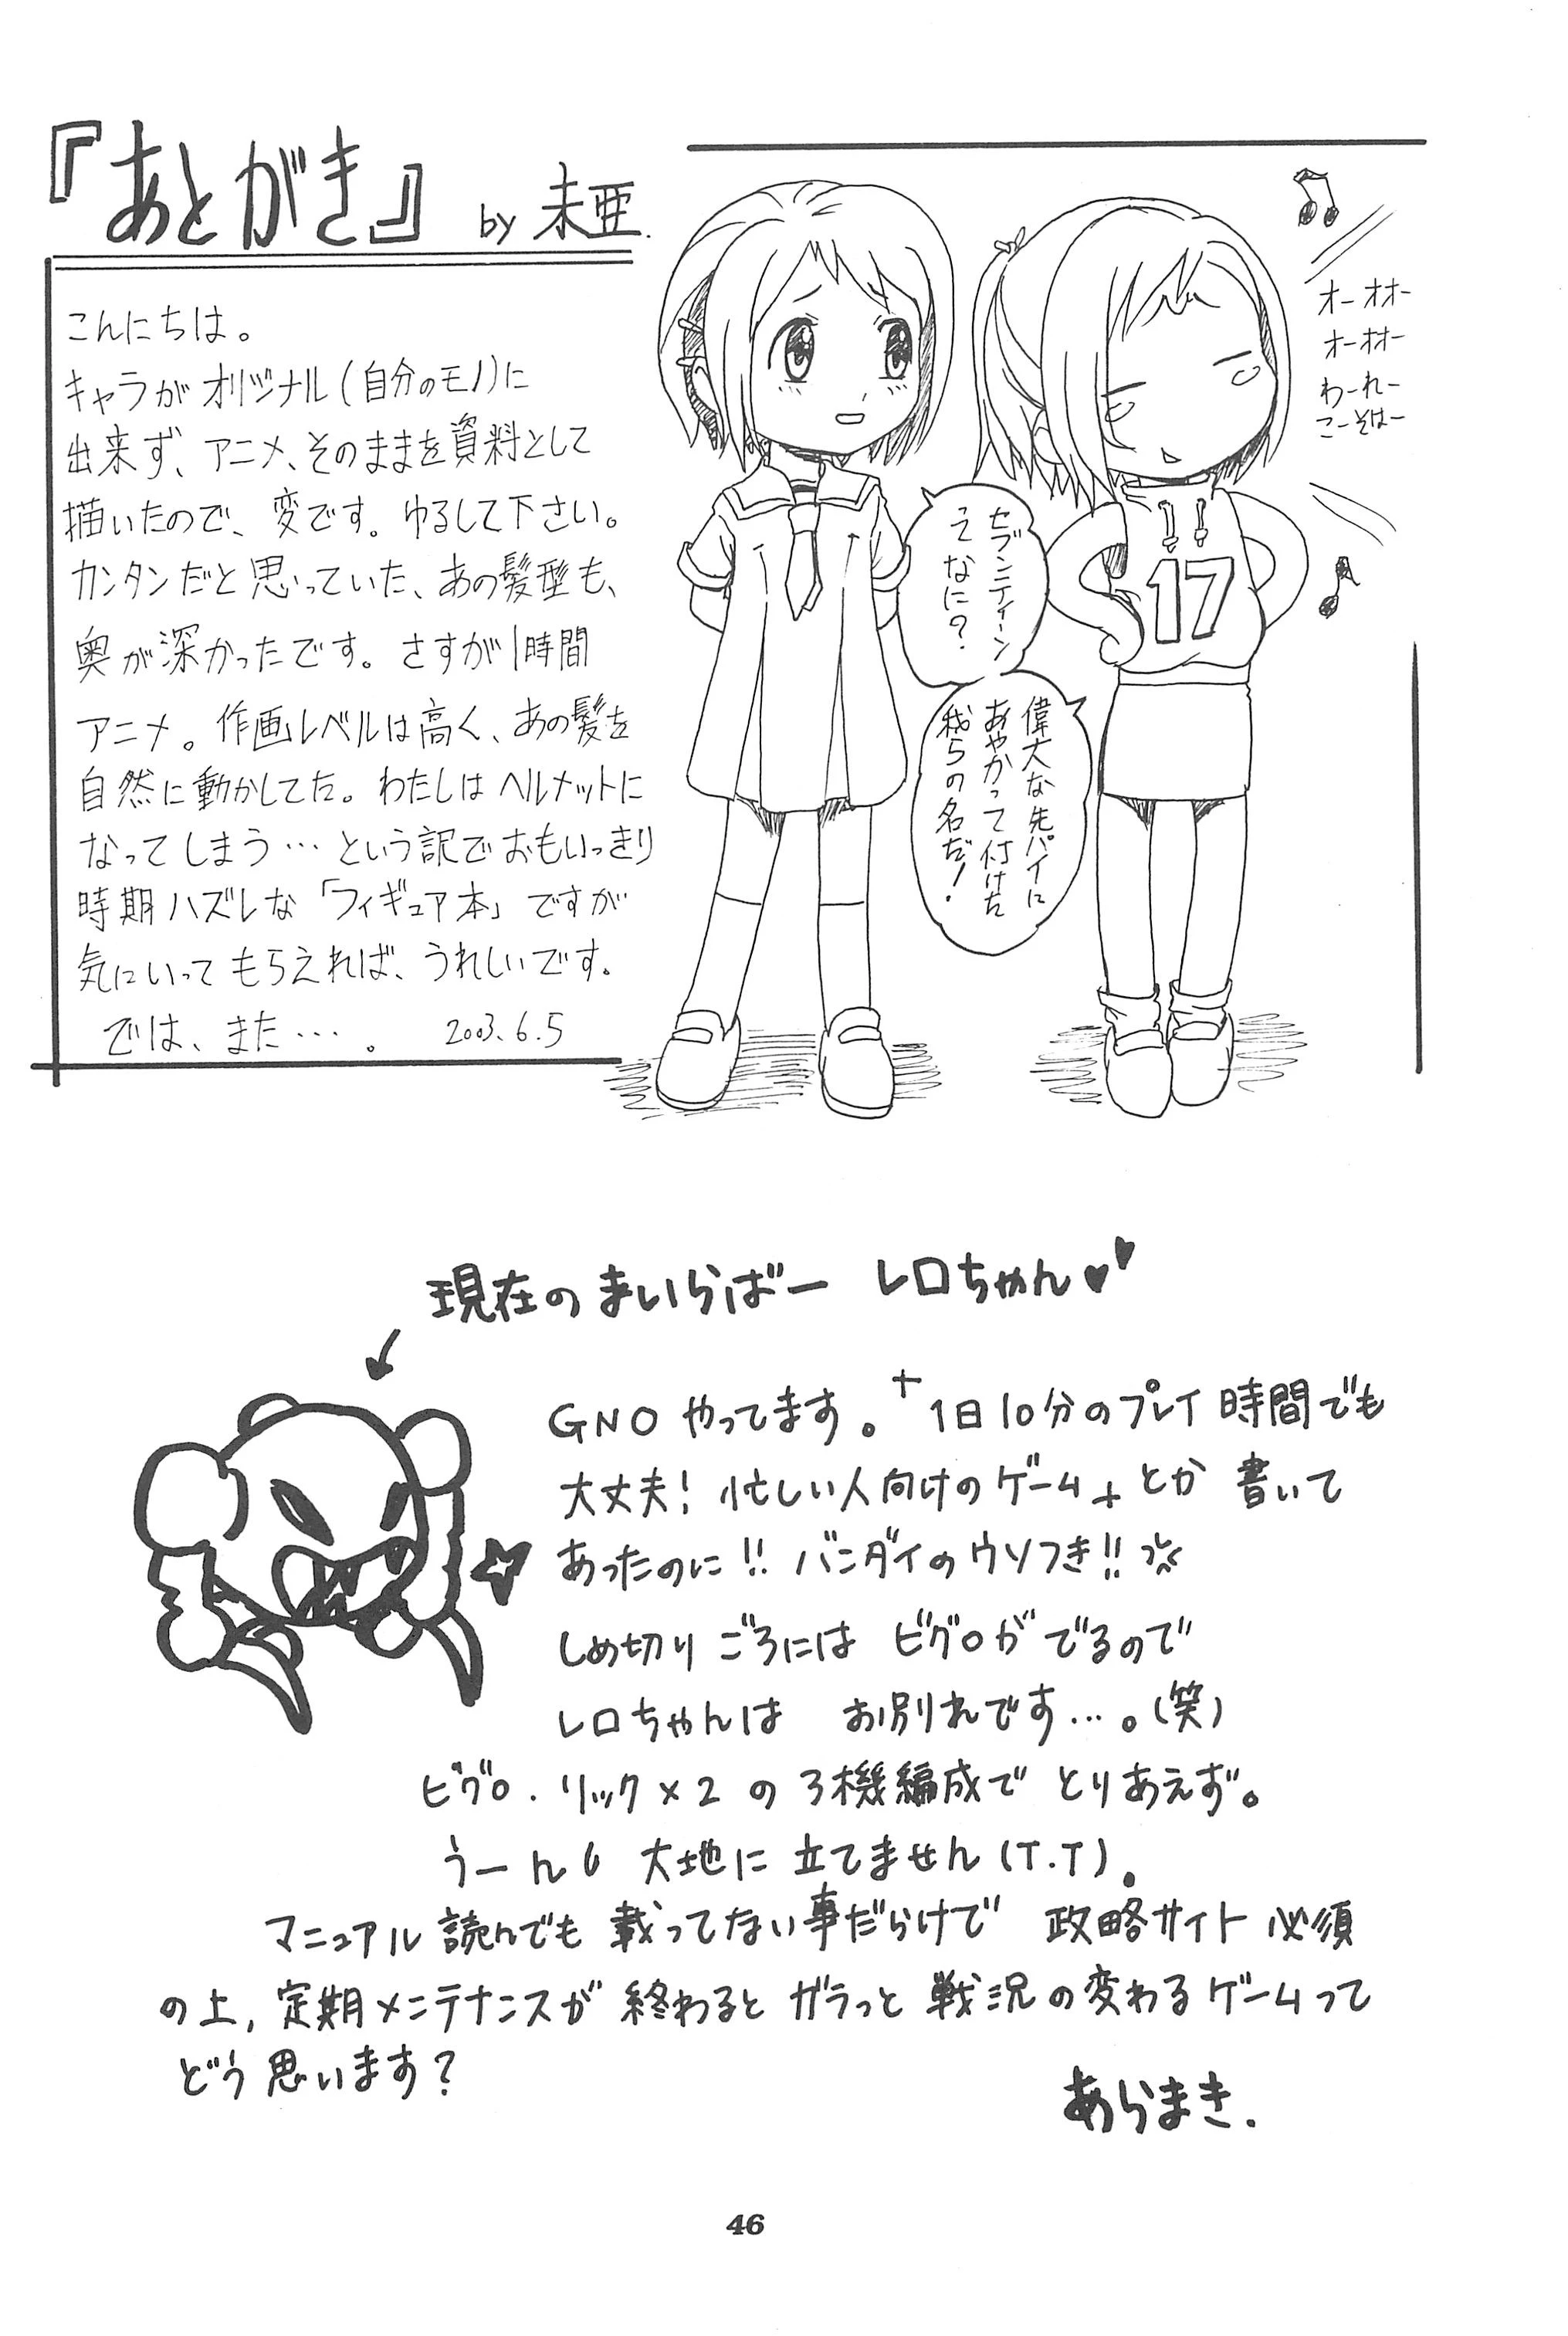 『あとがき』 by 未亜.
こんにちは。
キャラが オリジナル(自分のモノ)に
出来ず、アニメ、そのままを資料として
描いたので、変です。ゆるして下さい。
カンタンだと思っていた、あの髪型も、
奥が深かったです。さすが1時間
アニメ。作画レベルは高く、あの髪を
自然に動かしてた。わたしは ヘルメットに
なってしまう… という訳でおもいっきり
時期ハズレな「フィギュア本」ですが
気にいってもらえれば、うれしいです。
では、また…。 2003.6.5
セブンティーン
って
なに?
偉大な先パイに
あやかって付けた
我らの名だ!
17
オーオオー
オーオオー
わーれー
こーそはー
現在のまいらばー レロちゃん♥♥
GNO やってます。 1日10分のプレイ時間でも
大丈夫! 忙しい人向けのゲーム とか 書いて
あったのに!! バンダイのウソつき!!
しめ切りごろには ビグロが でるので
レロちゃんは お別れです…。(笑)
ビグロ. リック×2 の 3機編成で とりあえず。
うーん 大地に 立てません(T.T).
マニュアル 読んでも 載ってない事だらけで 攻略サイト 必須
の上, 定期メンテナンスが 終わると ガラっと 戦況の変わる ゲームって
どう思います?
あらまき.
46